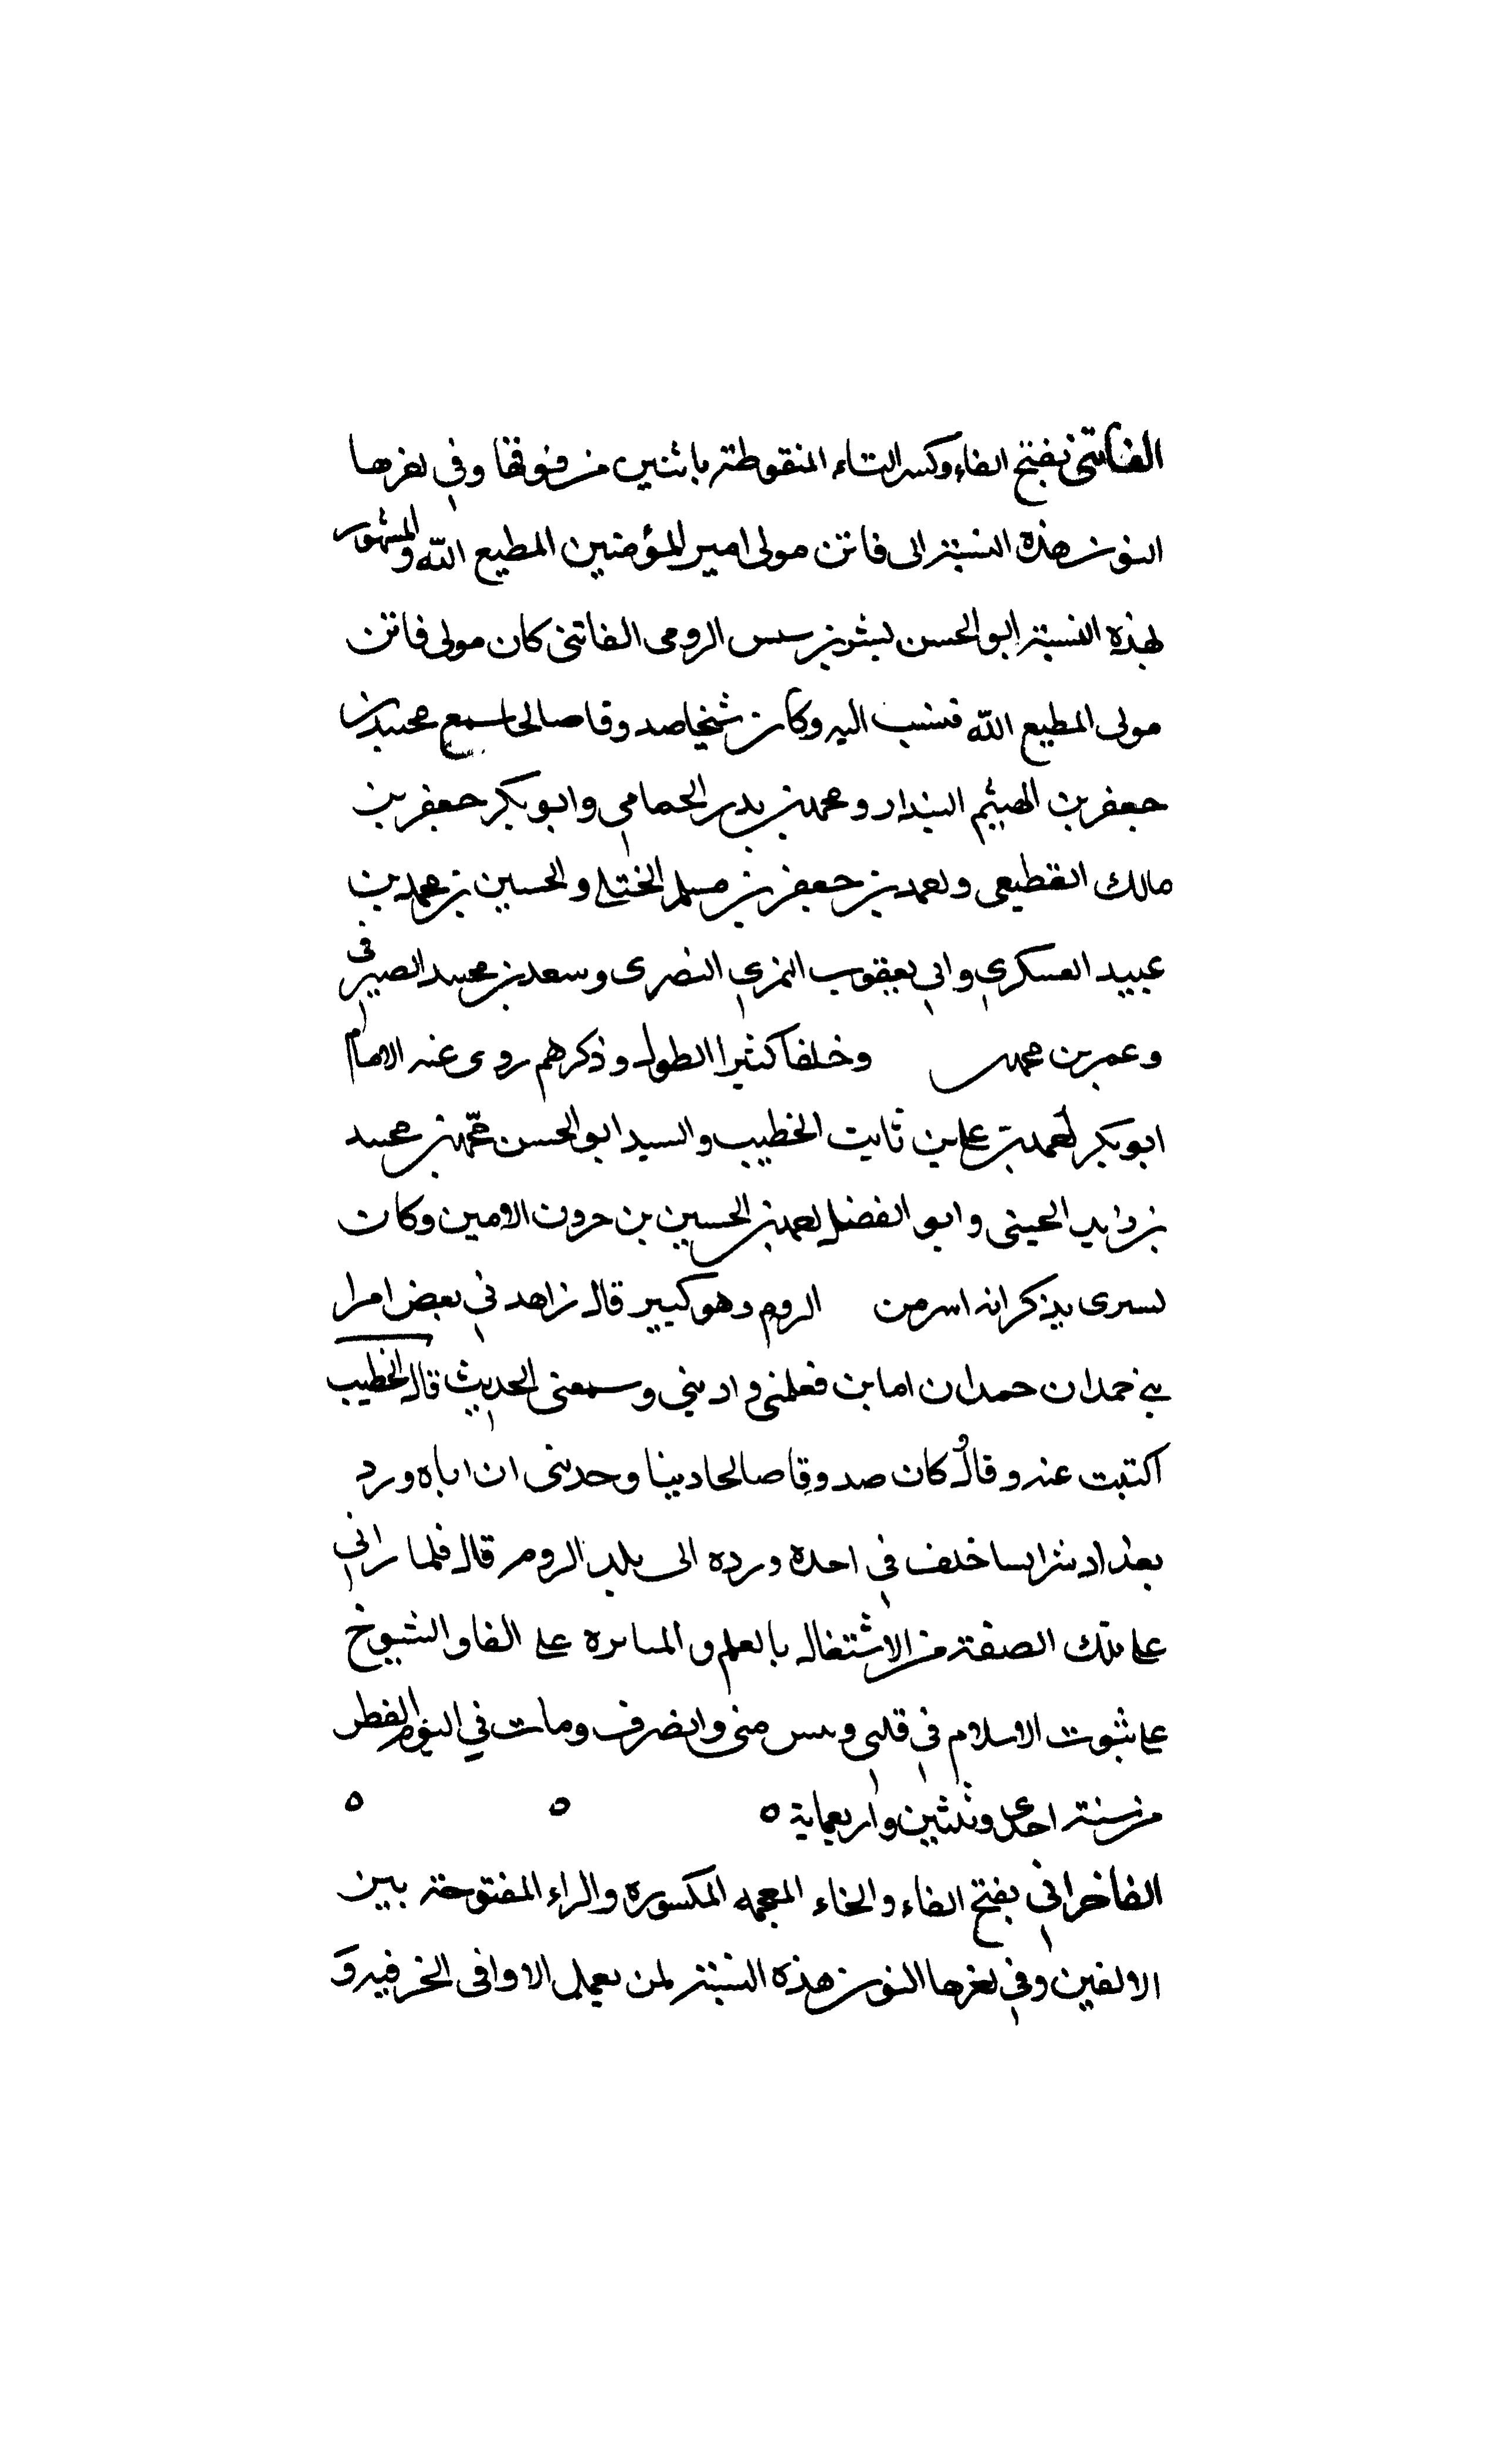 الفاتنى بفتح الفاء وكسر التاء المنقوطة باثنين من فوقها وفي اخرها
النون هذه النسبة الى فاتن مولى امير المؤمنين المطيع الله والمشهور
بهذه النسبة ابو الحسن بشر بن سس الرومى الفاتنى كان مولى فاتن
مولى المطيع الله فنسب اليه وكان شيخا صدوقا صالحا سمع محمد بن
جعفر بن الهيثم البندار ومحمد بن بدر الحمامي وابو بكر جعفر بن
مالك القطيعى واحمد بن جعفر بن مسلم الختلى والحسين بن محمد بن
عبيد العسكري وابي يعقوب النمري النصرى وسعد بن محمد الصيرفي
وعمر بن محمد وخلفا كثيرا الطول وذكرهم روى عنه الامام
ابو بكر احمد بن على بن ثابت الخطيب والسيد ابو الحسن محمد بن محمد
بن زيد الحسينى وابو الفضل احمد بن الحسين بن خرون الامين وكان
بسرى يذكر انه اسر من الروم وهو كبير قال زاهد في بعض امرا
بني حمدان حمدان اما بن فعلمنى وادبني وسمعنى الحديث قال الخطيب
اكتبت عنه وقال كان صدوقا صالحا دينا وحدثنى ان اباه ورد
بغداد سرا ليتا خلف في احده ورده الى بلد الروم قال فلما رانى
على تلك الصفة من الاشتغال بالعلم و المثابرة على الفا والشيوخ
على ثبوت الاسلام في قلبى ويس منى وانصرف ومات في اليوم الفطر
من سنة احدى وثلثين واربعماية ه ه ه
الفاخرانى بفتح الفاء والخاء المعجمه المكسوره والراء المفتوحة بين
الالفين وفي اخرها النون هذه النسبة لمن يعمل الاوانى الخزفيه و